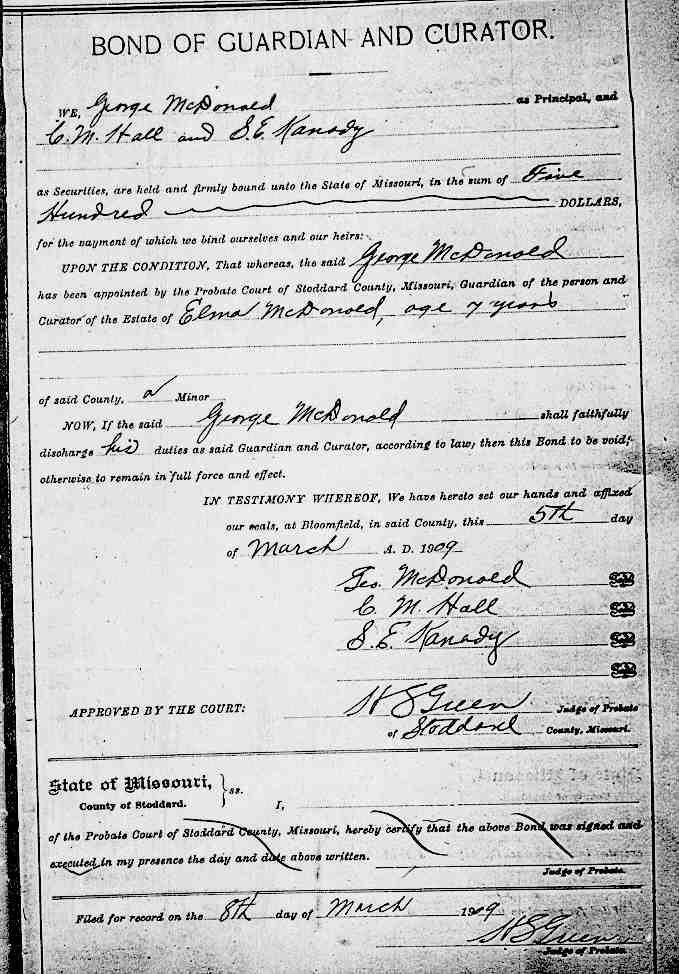 BOND OF GUARDIAN AND CURATOR.
WE, George McDonald as Principal, and
C. M. Hall and S. E. Kanady
as Securities, are held and firmly bound unto the State of Missouri, in the sum of Five
Hundred DOLLARS,
for the payment of which we bind ourselves and our heirs:
UPON THE CONDITION, That whereas, the said George McDonald
has been appointed by the Probate Court of Stoddard County, Missouri, Guardian of the person and
Curator of the Estate of Elma McDonald, age 7 years
of said County, a Minor
NOW, If the said George McDonald shall faithfully
discharge his duties as said Guardian and Curator, according to law; then this Bond to be void;
otherwise to remain in full force and effect.
IN TESTIMONY WHEREOF, We have hereto set our hands and affixed
our seals, at Bloomfield, in said County, this 5th day
of March A. D. 1909
Geo. McDonald Seal
C. M. Hall Seal
S. E. Kanady Seal
Seal
APPROVED BY THE COURT: H S Green Judge of Probate
of Stoddard County, Missouri.
State of Missouri, } ss.
County of Stoddard. I,
of the Probate Court of Stoddard County, Missouri, hereby certify that the above Bond was signed and
executed in my presence the day and date above written.
Judge of Probate.
Filed for record on the 8th day of March 1909
H S Green
Judge of Probate.